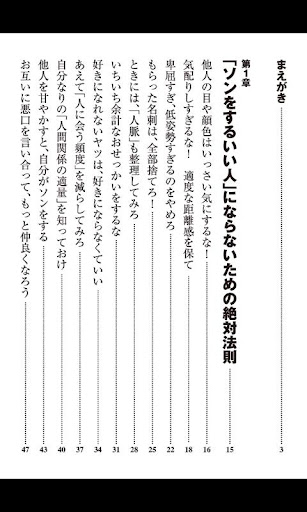 まえがき 3
第1章
「ソンをするいい人」にならないための絶対法則 15
他人の目や顔色はいっさい気にするな! 16
気配りしすぎるな! 適度な距離感を保て 18
卑屈すぎ、低姿勢すぎるのをやめろ 22
もらった名刺は、全部捨てろ! 25
ときには、「人脈」も整理してみろ 28
いちいち余計なおせっかいをするな 31
好きになれないヤツは、好きにならなくていい 34
あえて「人に会う頻度」を減らしてみろ 37
自分なりの「人間関係の適量」を知っておけ 40
他人を甘やかすと、自分がソンをする 43
お互いに悪口を言い合って、もっと仲良くなろう 47